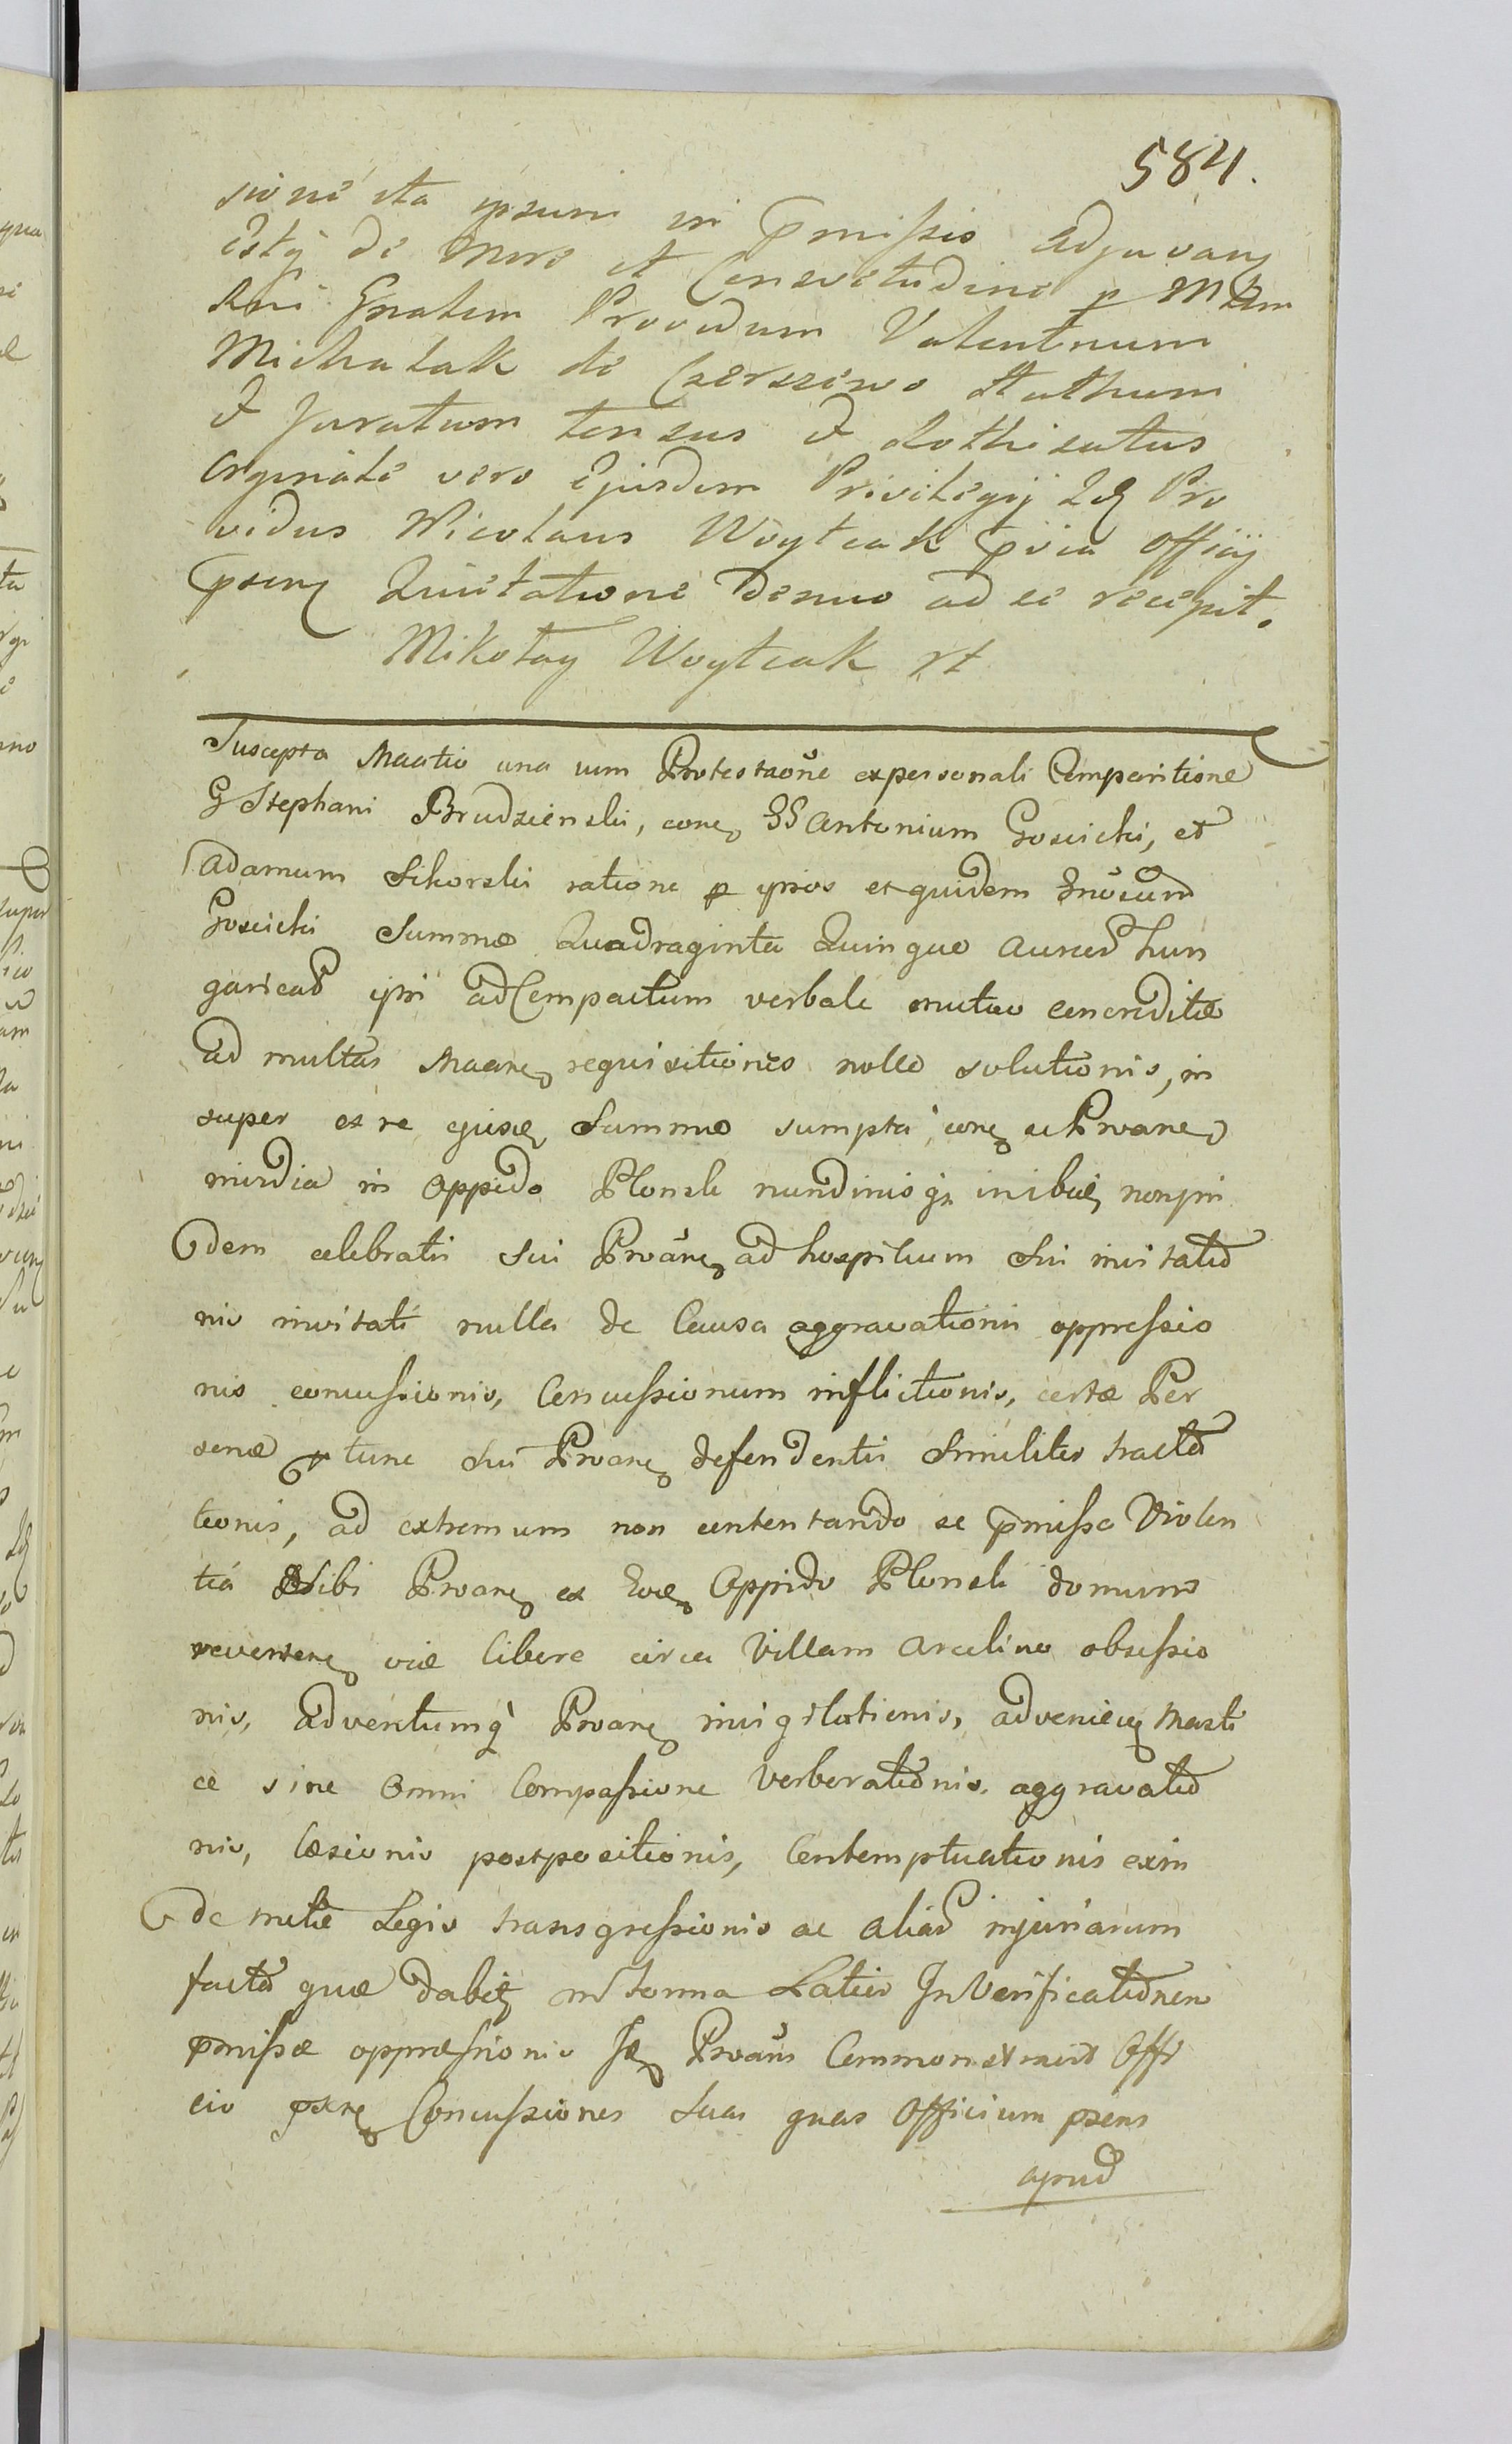 584.
sione ita ipsum in p̄missis adjuvan
estq̃ de More et Consvetudine p Mrūm
Sni Gnalem Providum Valentinum
Michalak de Czerszewo Stathum
& Juratum tensus & Rothisatus
Orginale vero Ejusdem Privilegij Idq Pro
vidus Nicolaus Woytcak p̄via Officij
p̄senq Quietatione Denuo ad se recepit.
Mikołay Woytcak rt
Suscepta Maatio una cum Protestaõne ex personali Comparitione
G Stephani Brudzienski, conq GG Antonium Goscicki, et
Adamum Sikorski ratione p ipsos et quidem Gnõsum
Goscicki Summæ Quadraginta Quinque Aureor hun
garicar ipsi ad Compactum verbale mutuo concreditæ
ad multas Maanq requisitiones nollæ solutionis, in
super ex re ejusdq Summæ sumpta conq se Proanq
in Oppido Plonsk nundinis inibiq non pri
dem celebratis Sui Proãnq ad hospitium Sui invitatio
nis invitati nulla de Causa aggravationis oppressio
nis concussionis, Concussionum inflictionis, certæ Per
sonæ p tunc Sui Proanq defendentis Similiter tracta
tionis, ad extremum non contentando se p̄missa Violen
tia Sibi Proanq ex Eodq Oppido Plonsk domum
revertenq viæ liberæ circa Villam Arcelino obsessio
nis, adventumq̃ Proanq invigilationis, advenienq
ce sine Omni Compassione Verberationis, aggravatio
nis, læsionis postpositionis, Contemptuationis exin
de metæ Legis transgressionis ac aliar injuriarum
factar quæ dabitq in Termino Latius In Verificationem
p̄missæ oppræssionis Idq Proans Commonstravit Offi
cio p̄senq Concussiones Suas quas Officium p̄sens
apud